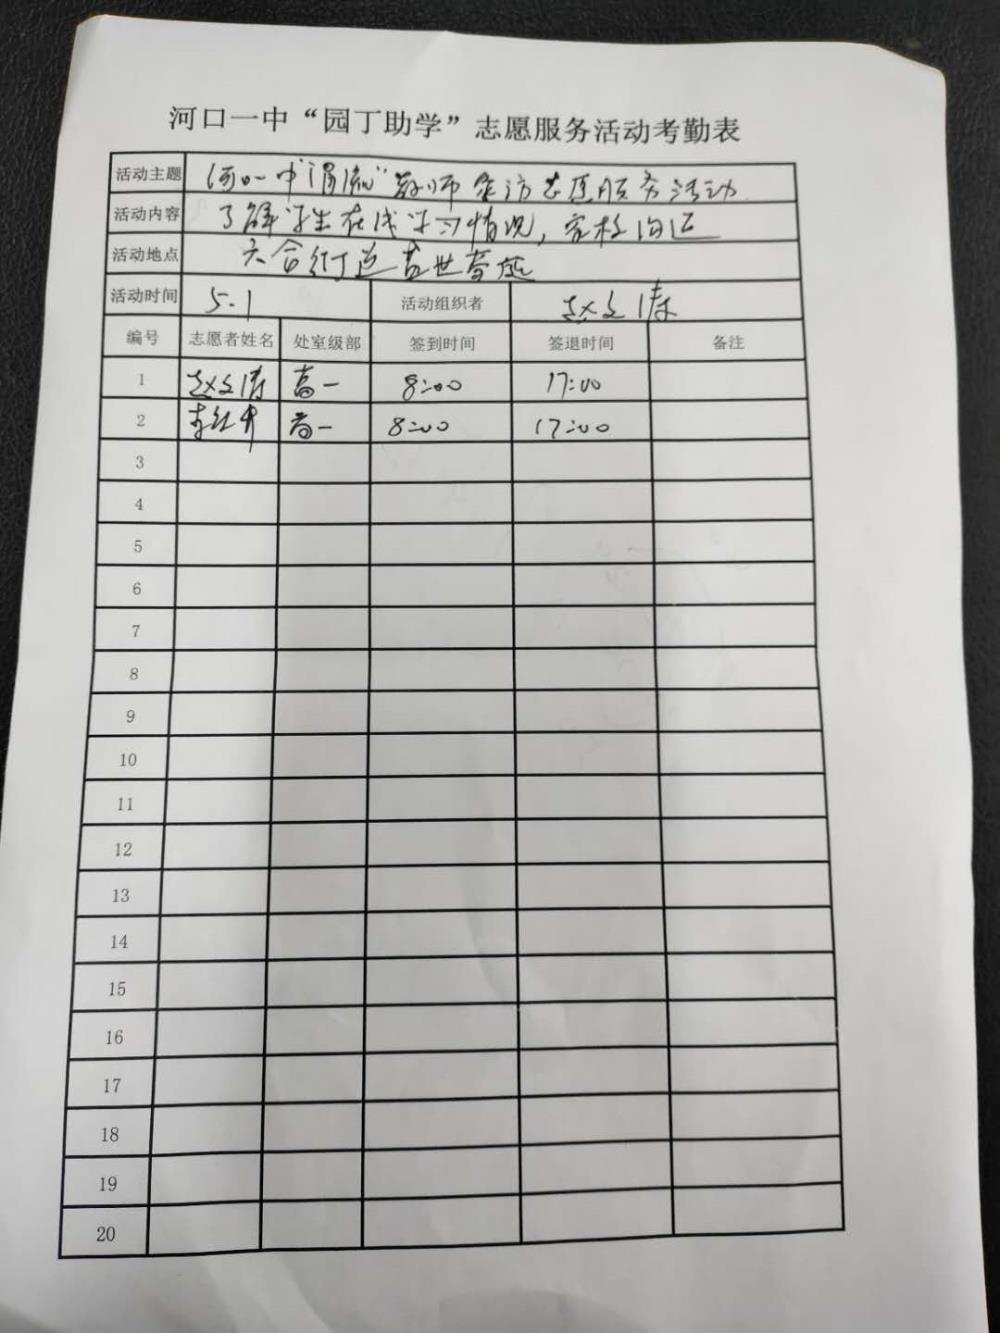 河口一中“园丁助学”志愿服务活动考勤表
活动主题 河口一中“涓流”教师家访志愿服务活动
活动内容 了解学生在线学习情况，家校沟通
活动地点 六合街道
活动时间 5.1 活动组织者 赵文涛
编号 志愿者姓名 处室级部 签到时间 签退时间 备注
1 赵文涛 高一 8:00 17:00
2 高一 8:00 17:00
3
4
5
6
7
8
9
10
11
12
13
14
15
16
17
18
19
20